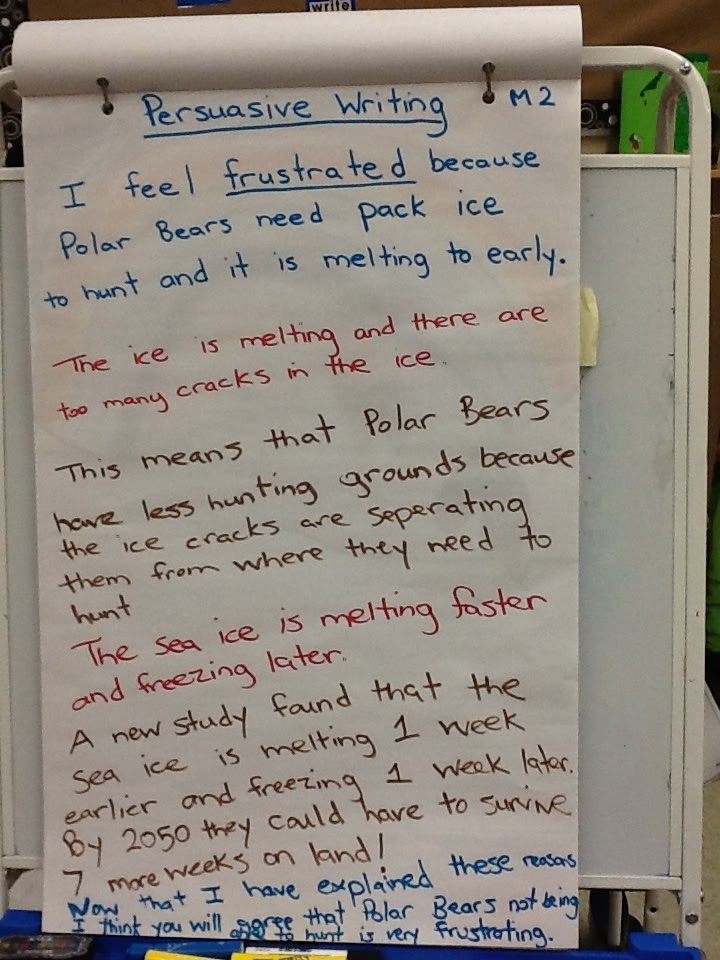 write
Persuasive Writing M2
I feel frustrated because
Polar Bears need pack ice
to hunt and it is melting to early.
The ice is melting and there are
too many cracks in the ice.
This means that Polar Bears
have less hunting grounds because
the ice cracks are seperating
them from where they need to
hunt
The sea ice is melting faster
and freezing later.
A new study found that the
sea ice is melting 1 week
earlier and freezing 1 week later.
By 2050 they could have to survive
7 more weeks on land!
Now that I have explained these reasons
I think you will agree that Polar Bears not being
able to hunt is very frustrating.